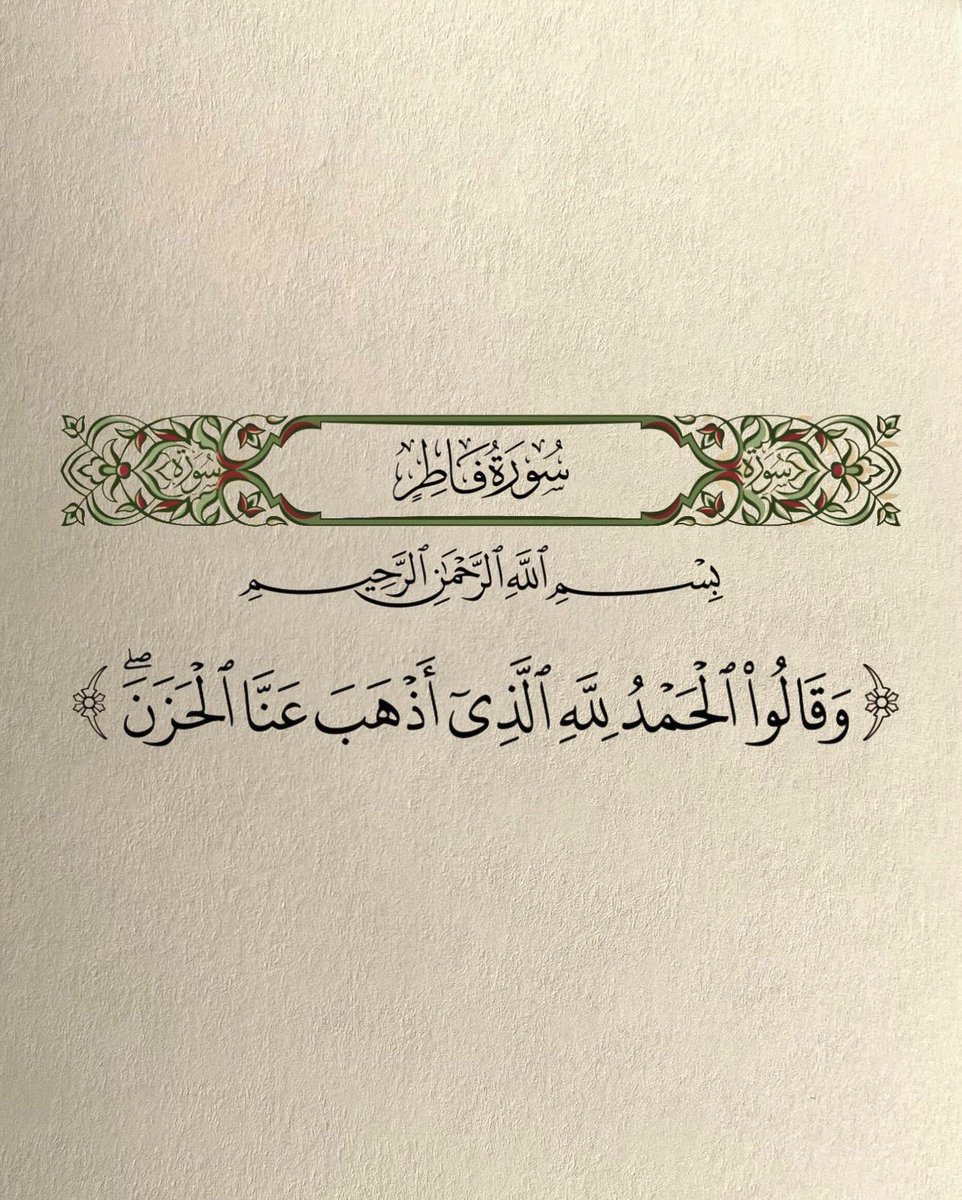 سُورَةُ فَاطِرٍ
سورة
سورة
بِسْمِ ٱللَّهِ ٱلرَّحْمَٰنِ ٱلرَّحِيمِ
﴿وَقَالُوا۟ ٱلْحَمْدُ لِلَّهِ ٱلَّذِىٓ أَذْهَبَ عَنَّا ٱلْحَزَنَ ۖ﴾